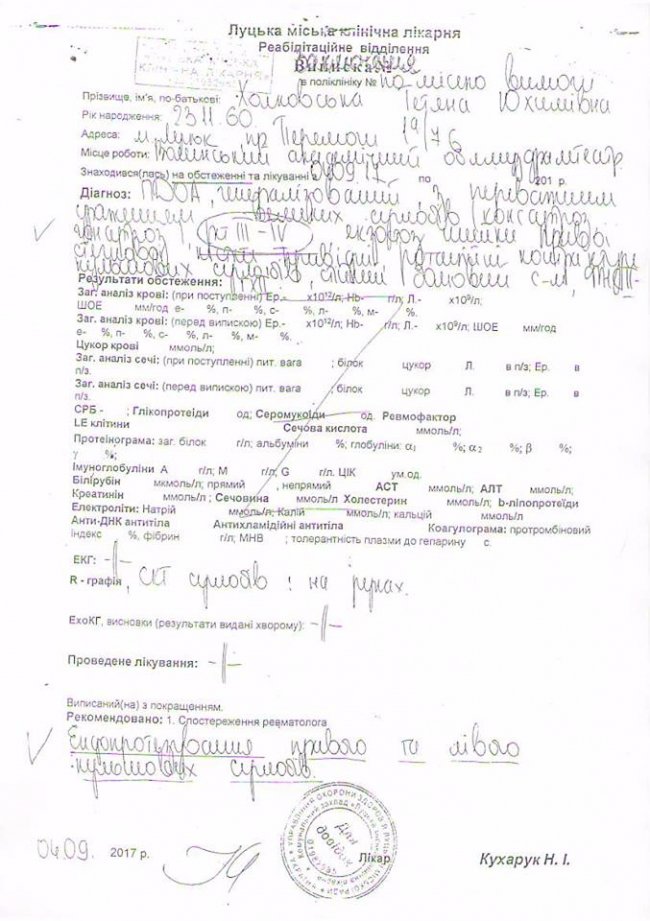 Луцька міська клінічна лікарня
Реабілітаційне відділення
Виписка №
в поліклініку № по місцю вимоги
Прізвище, ім'я, по-батькові: Тетяна Юхимівна
Рік народження: 23.11.60.
Адреса: м. Луцьк пр Перемоги 19/76
Місце роботи: Волинський академічний облмуздрамтеатр
Знаходився(лась) на обстеженні та лікуванні 04.09.17 по 201 р.
Діагноз: ПДОА, генералізований, з переважним
ураженням великих суглобів (коксартроз,
гонартроз) рт III – IV екзостоз шийки правої
стегнової кістки
кульшових суглобів, стійкий больовий с-м,
Результати обстеження:
Заг. аналіз крові: (при поступленні) Ер.- х10¹²/л; Hb- г/л; Л.- х10⁹/л;
ШОЕ мм/год е- %, п- %, с- %, л- %, м- %.
Заг. аналіз крові: (перед випискою) Ер.- х10¹²/л; Hb- г/л; Л.- х10⁹/л; ШОЕ мм/год
е- %, п- %, с- %, л- %, м- %.
Цукор крові ммоль/л;
Заг. аналіз сечі: (при поступленні) пит. вага ; білок цукор Л. в п/з; Ер. в
п/з.
Заг. аналіз сечі: (перед випискою) пит. вага ; білок цукор Л. в п/з; Ер. в
п/з.
СРБ - ; Глікопротеїди од; Серомукоїди од. Ревмофактор
LE клітини Сечова кислота ммоль/л;
Протеїнограма: заг. білок г/л; альбуміни %; глобуліни: α₁ %; α₂ %; β %;
γ %;
Імуноглобуліни А г/л; М г/л; G г/л. ЦІК ум.од.
Білірубін мкмоль/л; прямий , непрямий АСТ ммоль/л; АЛТ ммоль/л;
Креатинін ммоль/л ; Сечовина ммоль/л Холестерин ммоль/л; b-ліпопротеїди
Електроліти: Натрій ммоль/л; Калій ммоль/л; кальцій ммоль/л
Анти-ДНК антитіла Антихламідійні антитіла Коагулограма: протромбіновий
індекс %, фібрин г/л; МНВ ; толерантність плазми до гепарину с.
ЕКГ:
R - графія, СКТ суглобів : на руках.
ЕхоКГ, висновки (результати видані хворому):
Проведене лікування:
Виписаний(на) з покращенням.
Рекомендовано: 1. Спостереження ревматолога
Ендопротезування правого та лівого
кульшових суглобів.
04.09. 2017 р. Лікар Кухарук Н. І.